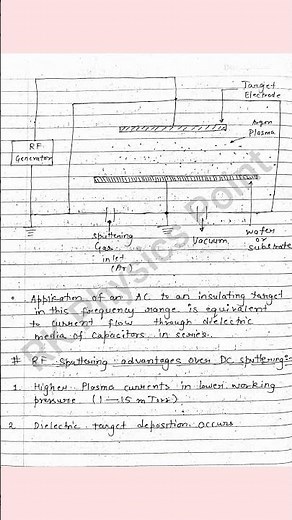 Target
Electrode
Argon
Plasma
RF
Generator
Sputtering
Gas
inlet
(Ar)
Vacuum
Wafer
or
Substrate
Physics Point
• Application of an AC to an insulating target
in this frequency range is equivalent
to current flow through dielectric
media of capacitors in series.
# RF Sputtering advantages over DC sputtering:-
1. Higher Plasma currents in lower working
pressure (1-15 mTorr)
2 Dielectric target deposition occurs